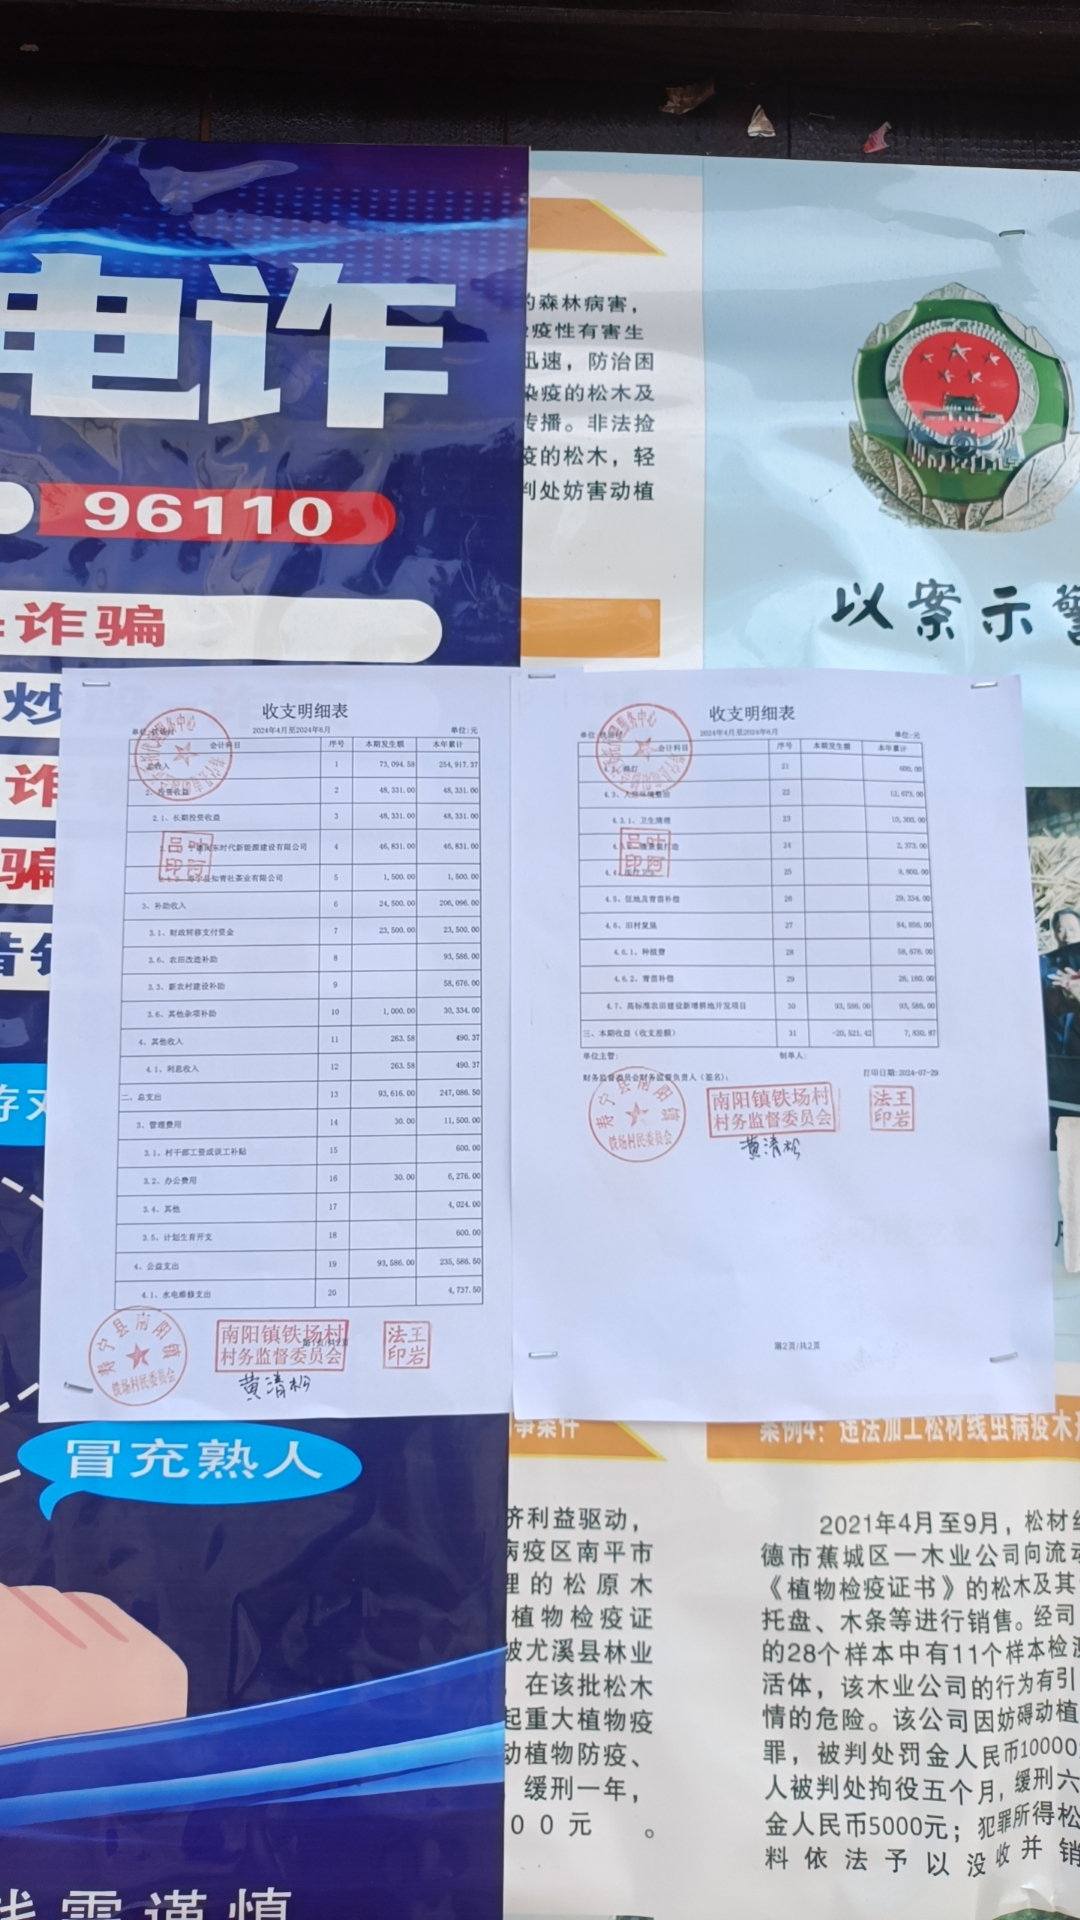 电诈
96110
诈骗
炒
诈
骗
冒充熟人
的森林病害，
疫性有害生
迅速，防治困
染疫的松木及
传播。非法捡
疫的松木，轻
判处妨害动植
以案示警
收支明细表
2024年4月至2024年6月
单位:元
会计科目 序号 本期发生额 本年累计
总收入 1 73,094.58 254,917.37
2、投资收益 2 48,331.00 48,331.00
2.1、长期投资收益 3 48,331.00 48,331.00
时代新能源建设有限公司 4 46,831.00 46,831.00
知青社茶业有限公司 5 1,500.00 1,500.00
3、补助收入 6 24,500.00 206,096.00
3.1、财政转移支付资金 7 23,500.00 23,500.00
3.6、农田改造补助 8 93,586.00
3.3、新农村建设补助 9 58,676.00
3.6、其他杂项补助 10 1,000.00 30,334.00
4、其他收入 11 263.58 490.37
4.1、利息收入 12 263.58 490.37
二、总支出 13 93,616.00 247,086.50
3、管理费用 14 30.00 11,500.00
3.1、村干部工资或误工补贴 15 600.00
3.2、办公费用 16 30.00 6,276.00
3.4、其他 17 4,024.00
3.5、计划生育开支 18 600.00
4、公益支出 19 93,586.00 235,586.50
4.1、水电维修支出 20 4,737.50
第1页/共2页
寿宁县南阳镇
铁场村民委员会
南阳镇铁场村
村务监督委员会
法王
印岩
黄清松
收支明细表
2024年4月至2024年6月
单位:元
会计科目 序号 本期发生额 本年累计
21 600.00
4.3、人居环境整治 22 12,673.00
4.3.1、卫生清理 23 10,300.00
24 2,373.00
25 9,900.00
4.5、征地及青苗补偿 26 29,334.00
4.6、旧村复垦 27 84,856.00
4.6.1、种植费 28 58,676.00
4.6.2、青苗补偿 29 26,180.00
4.7、高标准农田建设新增耕地开发项目 30 93,586.00 93,586.00
三、本期收益（收支差额） 31 -20,521.42 7,830.87
单位主管: 制单人:
财务监督委员会财务监督负责人（签名）: 打印日期:2024-07-29
寿宁县南阳镇
铁场村民委员会
南阳镇铁场村
村务监督委员会
法王
印岩
黄清松
第2页/共2页
事案件
济利益驱动，
病疫区南平市
理的松原木
植物检疫证
被尤溪县林业
在该批松木
起重大植物疫
动植物防疫、
缓刑一年，
000元。
案例4：违法加工松材线虫病疫木
2021年4月至9月，松材
德市蕉城区一木业公司向流动
《植物检疫证书》的松木及其
托盘、木条等进行销售。经司
的28个样本中有11个样本检测
活体，该木业公司的行为有引
情的危险。该公司因妨碍动植
罪，被判处罚金人民币10000
人被判处拘役五个月，缓刑六
金人民币5000元；犯罪所得松
料依法予以没收并销
需谨慎